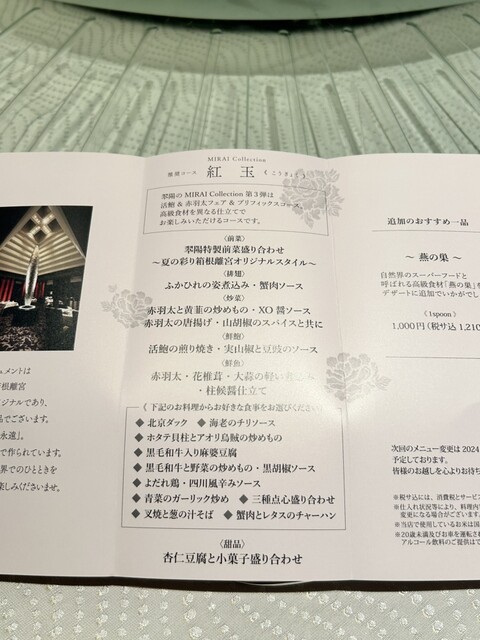 MIRAI Collection
紅 玉 《こうぎょく》
翠陽の MIRAI Collection 第3弾は
活鮑 & 赤羽太フェア & プリフィックスコース。
高級食材を異なる仕立てで
お楽しみいただけるコースです。
〈前菜〉
翠陽特製前菜盛り合わせ
～夏の彩り箱根離宮オリジナルスタイル～
〈排翅〉
ふかひれの姿煮込み・蟹肉ソース
〈炒菜〉
赤羽太と黄韮の炒めもの・XO 醤ソース
赤羽太の唐揚げ・山胡椒のスパイスと共に
〈鮮鮑〉
活鮑の煎り焼き・実山椒と豆豉のソース
〈鮮魚〉
赤羽太・花椎茸・大蒜の軽い煮込み
・柱候醤仕立て
《 下記のお料理からお好きな食事をお選びください 》
◆ 北京ダック ◆ 海老のチリソース
◆ ホタテ貝柱とアオリ烏賊の炒めもの
◆ 黒毛和牛入り麻婆豆腐
◆ 黒毛和牛と野菜の炒めもの・黒胡椒ソース
◆ よだれ鶏・四川風辛みソース
◆ 青菜のガーリック炒め ◆ 三種点心盛り合わせ
◆ 叉焼と葱の汁そば ◆ 蟹肉とレタスのチャーハン
〈甜品〉
杏仁豆腐と小菓子盛り合わせ
追加のおすすめ一品
～ 燕の巣 ～
自然界のスーパーフードと
呼ばれる高級食材「燕の巣」を
デザートに追加でいかがでし
〈1spoon〉
1,000円 (税サ込 1,210
次回のメニュー変更は 2024
予定しております。
皆様のお越しを心よりお待ち
※税サ込には、消費税とサービ
※仕入れ状況等により、料理内
変更になる場合がございます。
※当店で使用しているお米は国
※20歳未満及びお車を運転され
アルコール飲料のご提供はで
ュメントは
根離宮
ジナルであり、
品でございます。
永遠」。
で作られています。
界でのひとときを
しみくださいませ。